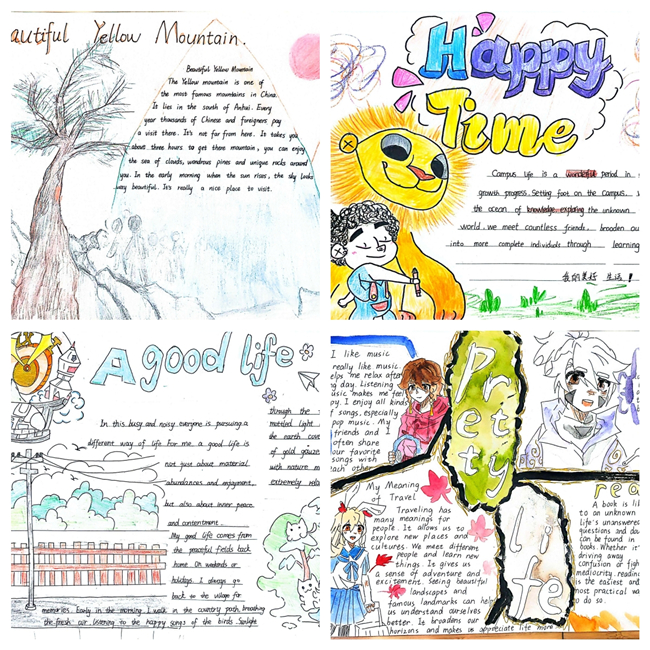 autiful Yellow Mountain.
Beautiful Yellow Mountain
The Yellow mountain is one of
the most famous mountains in China.
It lies in the south of Anhui. Every
year thousands of Chinese and foreigners pay
a visit there. It's not far from here. It takes you
about three hours to get there mountain, you can enjoy
the sea of clouds, wondrous pines and unique rocks around
you. In the early morning when the sun rises, the sky looks
way beautiful. It's really a nice place to visit.
Happy
Time
Campus life is a wonderful period in
growth progress. Setting foot on the campus.
the ocean of knowledge exploring the unknown
world. we meet countless friends. brooden ou
into more complete individuals through learning
我的美好 生活!
A good life
In this busy and noisy everyone is pursuing a
different way of life For me, a good life is
not just about material
abundances and enjoyment.
but also about inner peace.
and contentment.
My good life comes from
the peaceful fields back
home On weekends or
holidays. I always go
back to the village for
memories. Early in the morning. I walk in the country path, breathing
the fresh air. listening to the happy songs of the birds. Sunlight
through the
mottled light
the earth cove
of gold gauze
with nature m
extremely rela
Pretty
life
I like music
really like music.
elps me relax after
ng day. Listening
usic makes me feel
py. I enjoy all kinds
f songs, especially
pop music. My
friends and I
often share
our favorite
songs with
each other
My Meaning
of Travel
Traveling has
many meanings for
people. It allows us to
explore new places and
cultures. We meet different
people and learn new
things. It gives us
a sense of adventure and
excitement. Seeing beautiful
landscapes and
famous landmarks can help
us understand ourselves
better. It broadens our
horizons and makes us appreciate life more
rea
A book is lik
to an unknown
Life's unanswere
questions and dou
can be found in
books. Whether it'
driving away
confusion of figh
mediocrity, readin
is the easiest and
most practical wa
to do so.